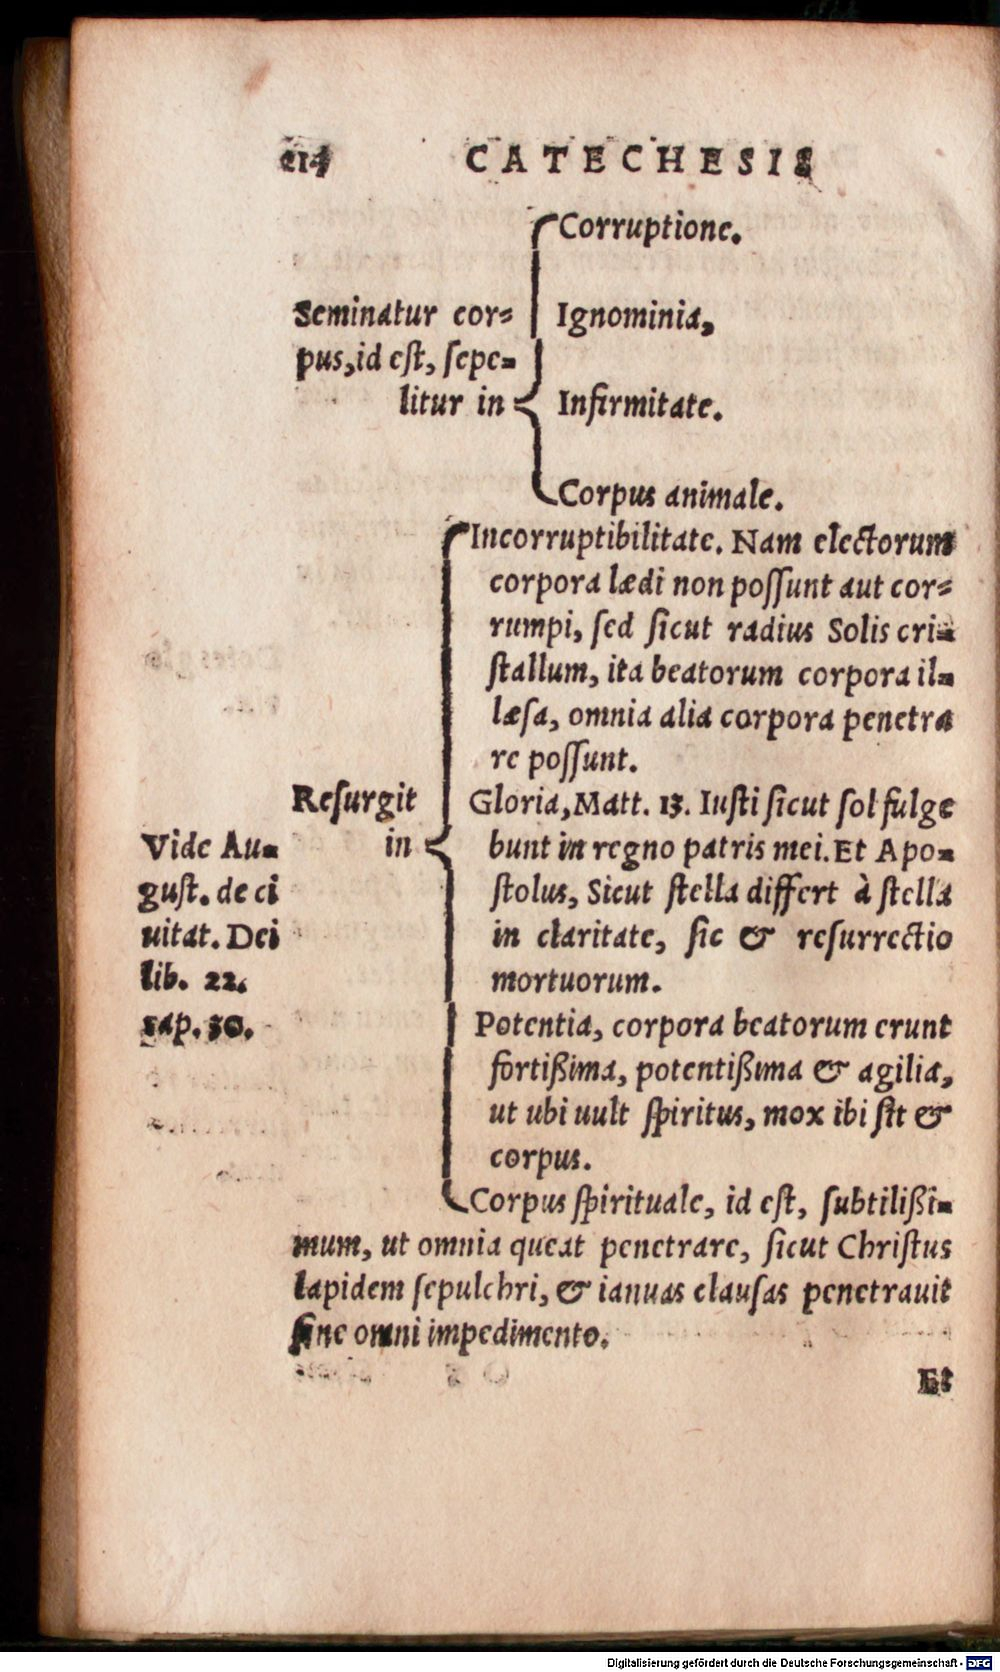 214 CATECHESIS
Corruptione.
Seminatur cor-
pus, id eſt, ſepe-
litur in
Ignominia,
Infirmitate.
Corpus animale.
Resurgit
in
Incorruptibilitate. Nam electorum
corpora lædi non poſſunt aut cor-
rumpi, ſed ſicut radius Solis cri-
ſtallum, ita beatorum corpora il-
læſa, omnia alia corpora penetra
re poſſunt.
Gloria, Matt. 13. Iuſti ſicut ſol fulge
bunt in regno patris mei. Et Apo-
ſtolus, Sicut ſtella differt à ſtella
in claritate, ſic & reſurrectio
mortuorum.
Potentia, corpora beatorum erunt
fortißima, potentißima & agilia,
ut ubi uult ſpiritus, mox ibi ſit &
corpus.
Corpus ſpirituale, id eſt, ſubtilißi-
mum, ut omnia queat penetrare, ſicut Chriſtus
lapidem ſepulchri, & ianuas clauſas penetrauit
ſine omni impedimento.
Vide Au-
guſt. de ci
uitat. Dei
lib. 22.
cap. 30.
Et
Digitalisierung gefördert durch die Deutsche Forschungsgemeinschaft - DFG